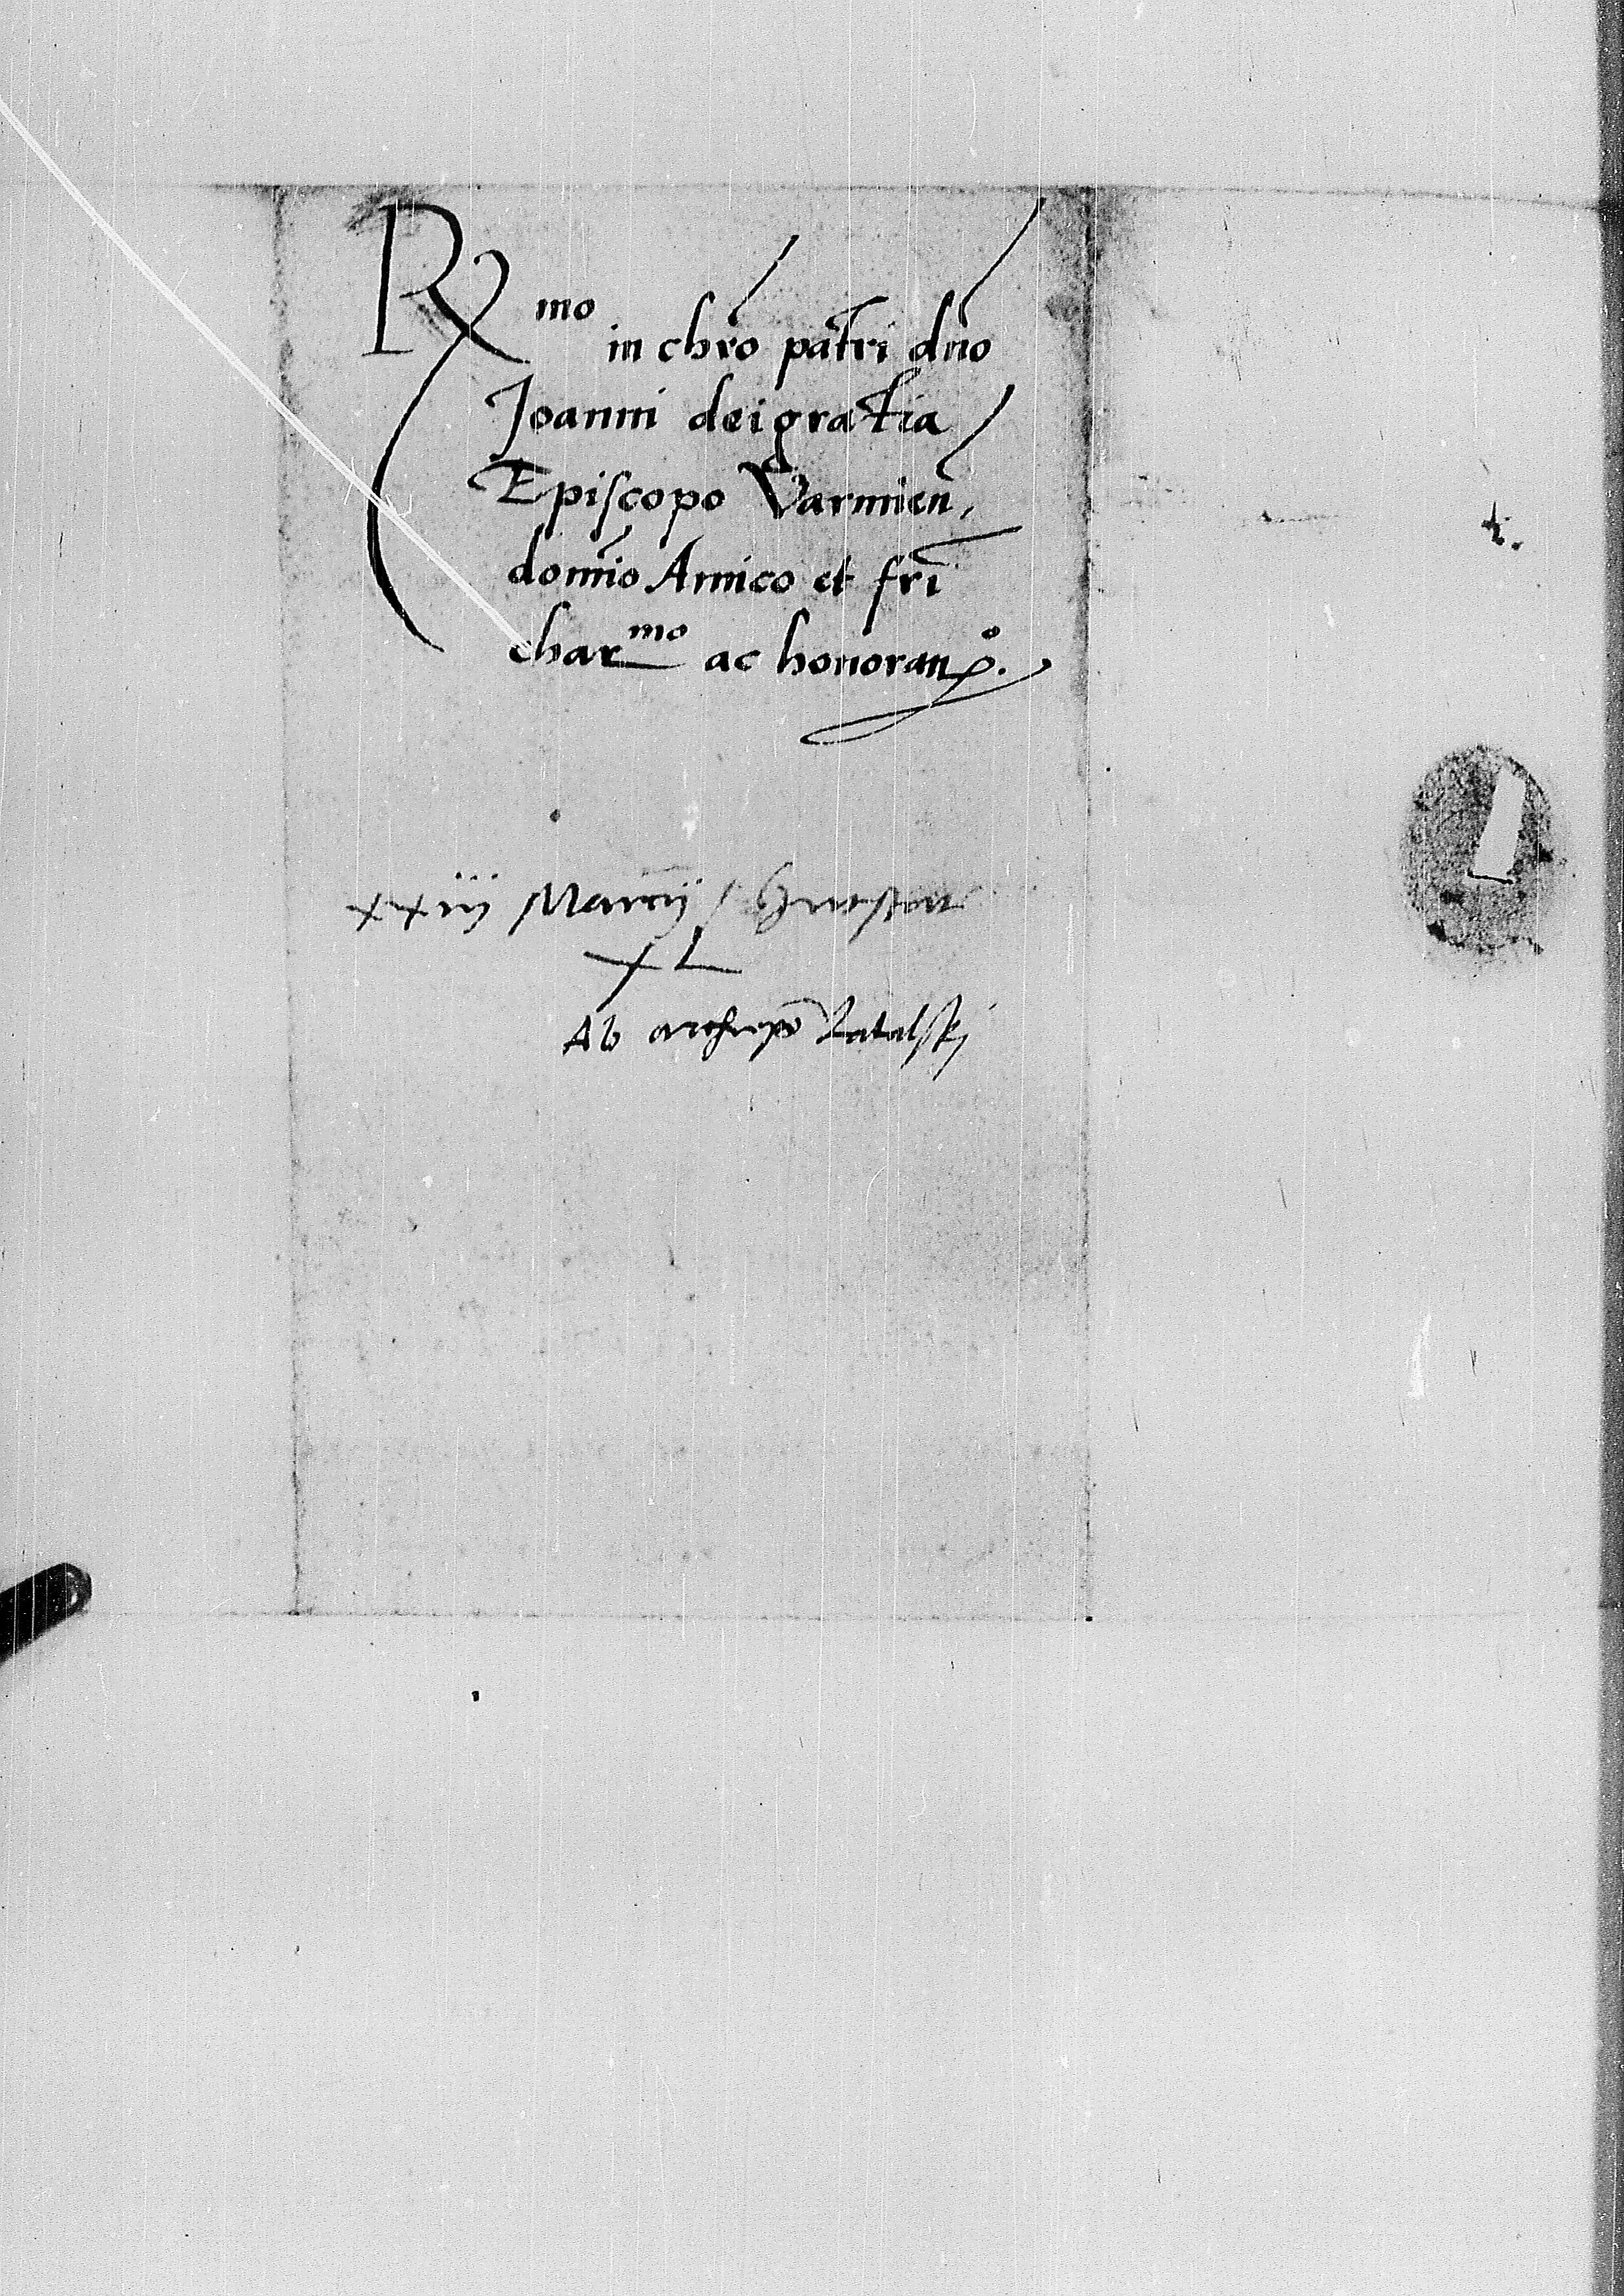 R mo in chro patri dno
Joanni dei gratia
Episcopo Varmien,
domino Amico et fri
char mo ac honoran o.
xxiij Marcij /
XL
Ab archiepo Latalskj